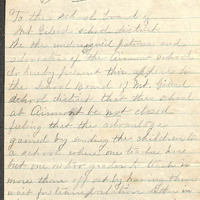 To the school board of
Mt. Gilead school district
We the undersigned patrons and
advocates of the Airmont school
do hereby present this appeal to
the School Board of Mt. Gilead
school district that the school
at Airmont be not closed
feeling that the advantage
gained by sending the children to a
school where one teacher has
but one or two grades to teach is
more than off set by having them
wait for transportation